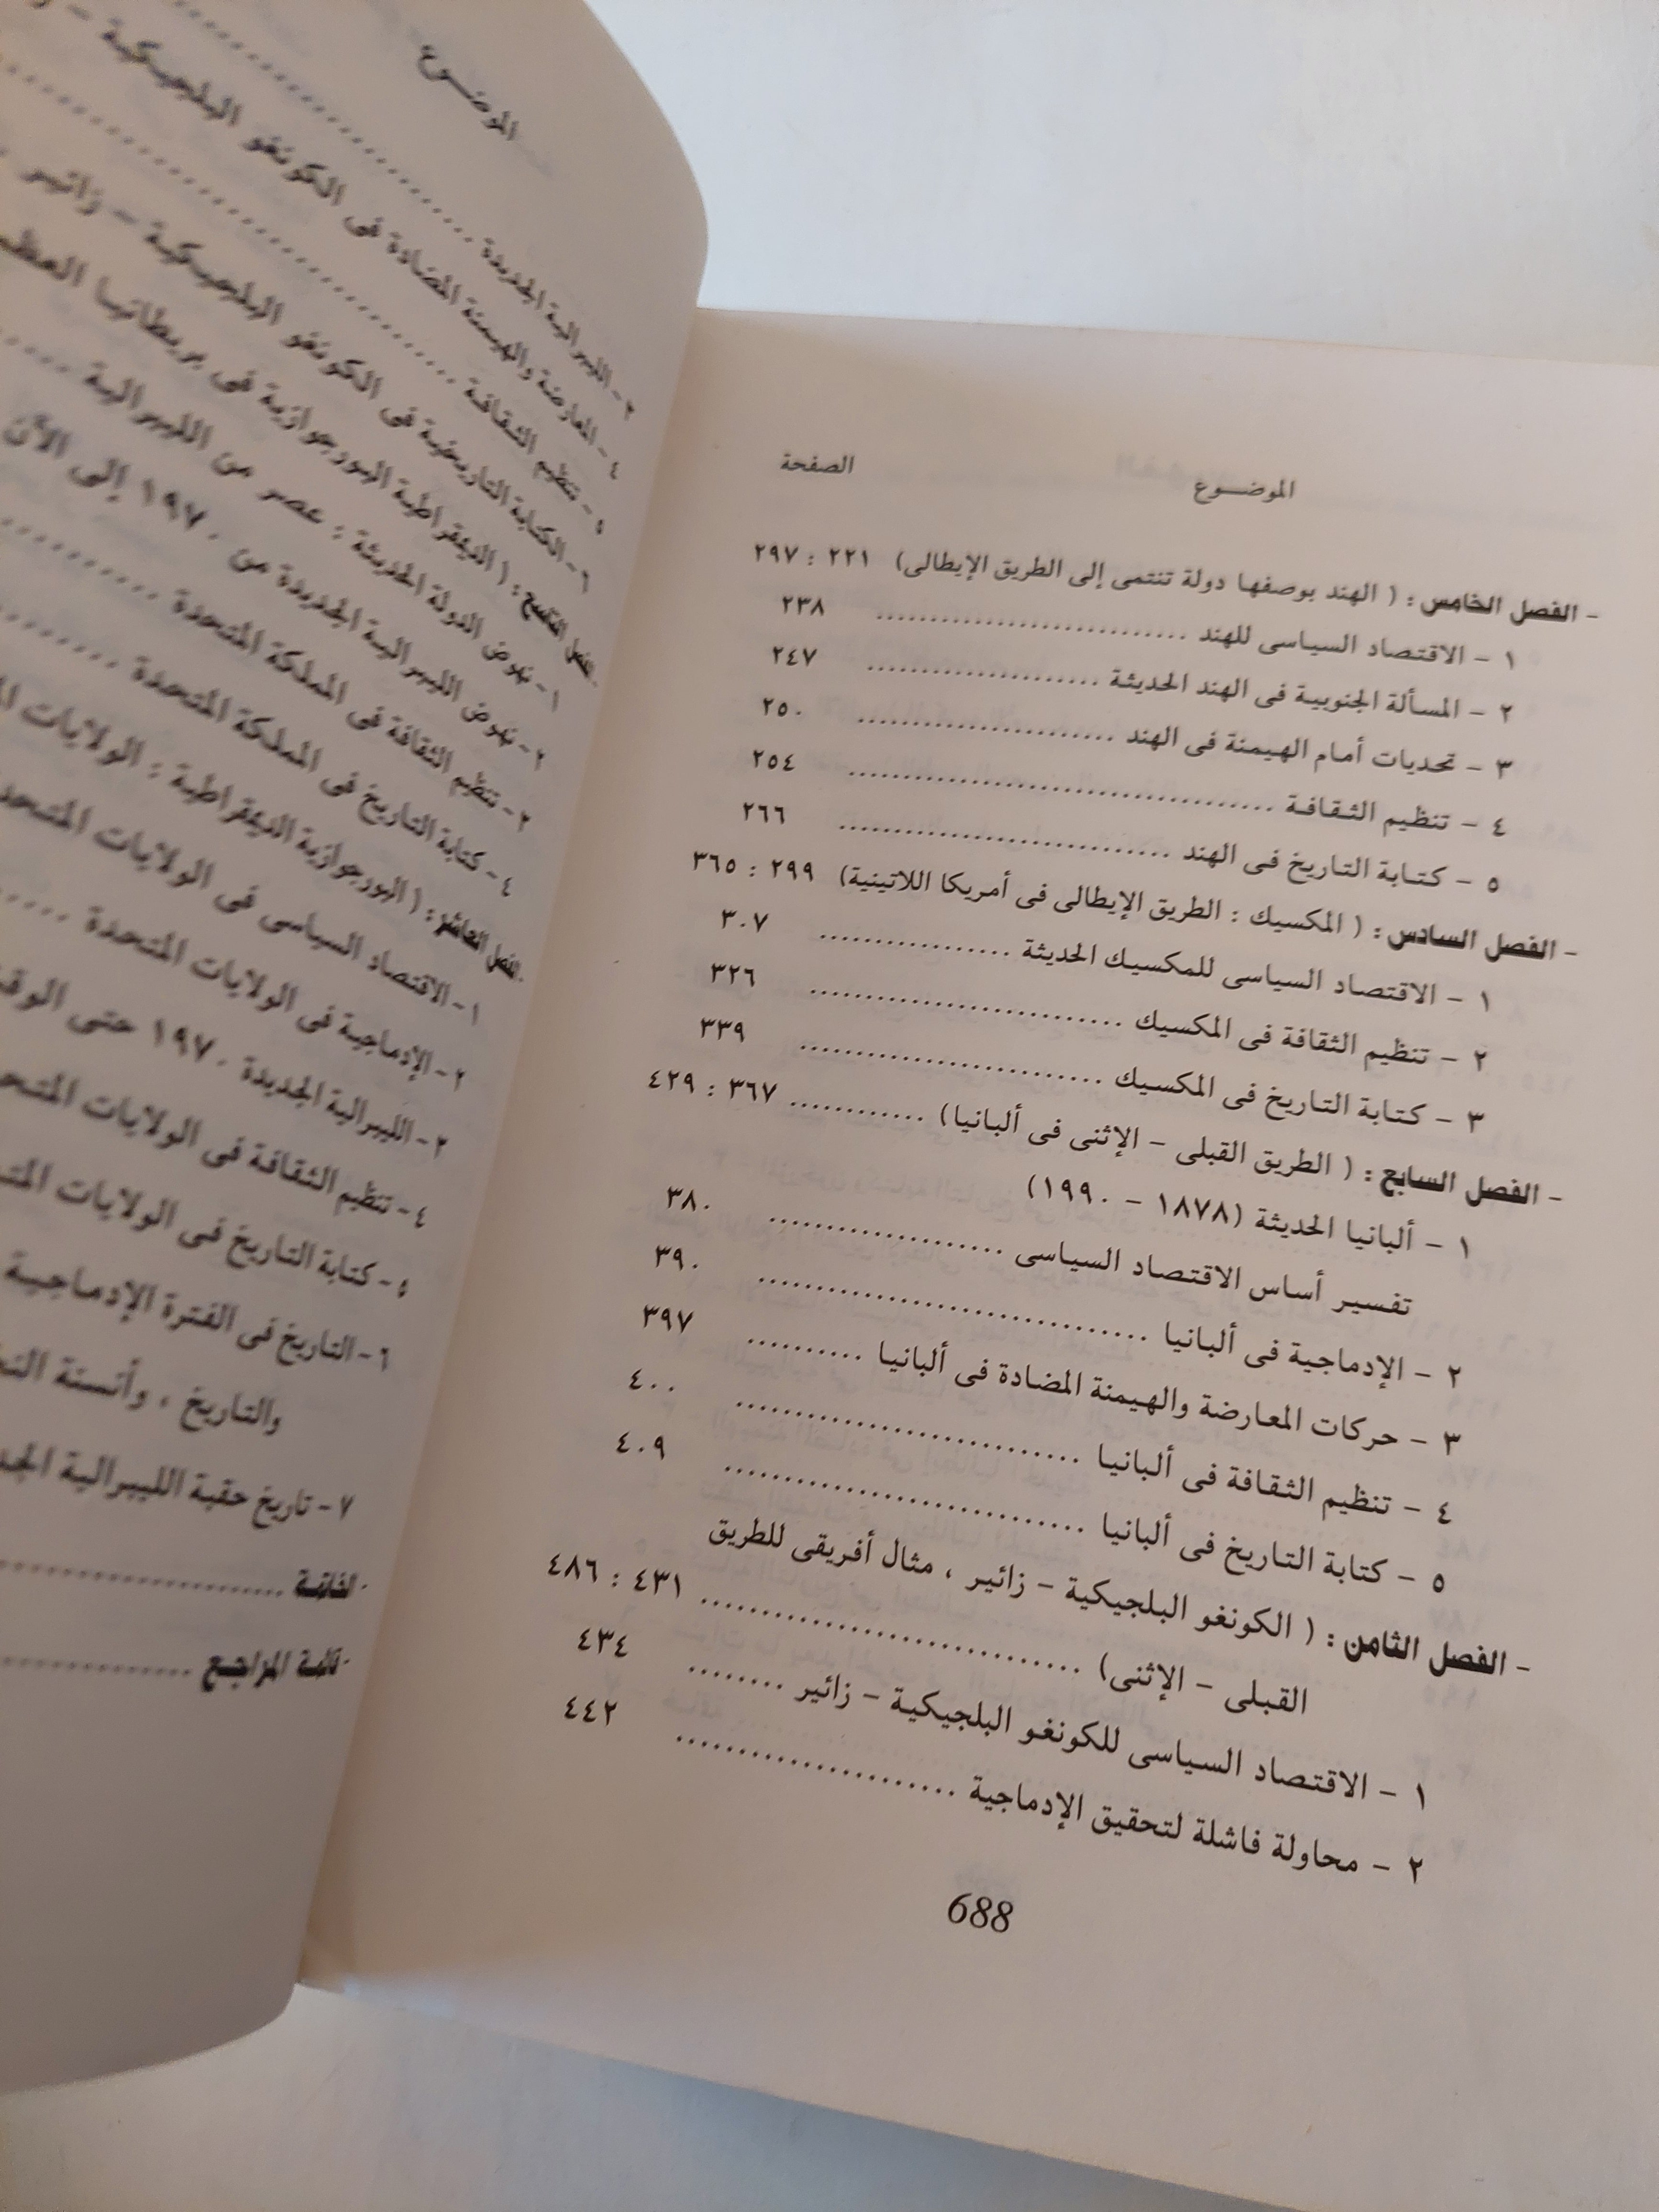 الموضــوع الصفحة
- الفصل الخامس : ( الهند بوصفها دولة تنتمى إلى الطريق الإيطالى) ٢٢١ : ٢٩٧
١ - الاقتصاد السياسى للهند ............................ ٢٣٨
٢ - المسألة الجنوبية فى الهند الحديثة ..................... ٢٤٧
٣ - تحديات أمام الهيمنة فى الهند ........................ ٢٥٠
٤ - تنظيم الثقافة ....................................... ٢٥٤
٥ - كتابة التاريخ فى الهند .............................. ٢٦٦
- الفصل السادس : ( المكسيك : الطريق الإيطالى فى أمريكا اللاتينية) ٢٩٩ : ٣٦٥
١ - الاقتصاد السياسى للمكسيك الحديثة ................. ٣٠٧
٢ - تنظيم الثقافة فى المكسيك ............................ ٣٢٦
٣ - كتابة التاريخ فى المكسيك ........................... ٣٣٩
- الفصل السابع : ( الطريق القبلى - الإثنى فى ألبانيا) ............ ٣٦٧ : ٤٢٩
١ - ألبانيا الحديثة (١٨٧٨ - ١٩٩٠)
تفسير أساس الاقتصاد السياسى .................... ٣٨٠
٢ - الإدماجية فى ألبانيا ................................. ٣٩٠
٣ - حركات المعارضة والهيمنة المضادة فى ألبانيا .......... ٣٩٧
٤ - تنظيم الثقافة فى ألبانيا .............................. ٤٠٠
٥ - كتابة التاريخ فى ألبانيا .............................. ٤٠٩
- الفصل الثامن : ( الكونغو البلجيكية - زائير ، مثال أفريقى للطريق
القبلى - الإثنى) ................................ ٤٣١ : ٤٨٦
١ - الاقتصاد السياسى للكونغو البلجيكية - زائير ........ ٤٣٤
٢ - محاولة فاشلة لتحقيق الإدماجية ....................... ٤٤٢
688
الموضــوع
٣ - الليبرالية الجديدة ....................
٤ - المعارضة والهيمنة المضادة فى الكونغو البلجيكية -
٥ - تنظيم الثقافة ....................
٦ - الكتابة التاريخية فى الكونغو البلجيكية - زائير
الفصل التاسع : ( الديمقراطية البورجوازية فى بريطانيا
١ - نهوض الدولة الحديثة : عصر من الليبرالية .....
٢ - نهوض الليبرالية الجديدة من ١٩٧٠ إلى الآن
٣ - تنظيم الثقافة فى المملكة المتحدة ............
٤ - كتابة التاريخ فى المملكة المتحدة ............
الفصل العاشر : ( البورجوازية الديمقراطية : الولايات
١ - الاقتصاد السياسى فى الولايات
٢ - الإدماجية فى الولايات المتحدة .....
٣ - الليبرالية الجديدة ١٩٧٠ حتى
٤ - تنظيم الثقافة فى الولايات
٥ - كتابة التاريخ فى الولايات
٦ - التاريخ فى الفترة الإدماجية
والتاريخ ، وأنسنة
٧ - تاريخ حقبة الليبرالية
الخاتمة ....................
قائمة المراجع ..............